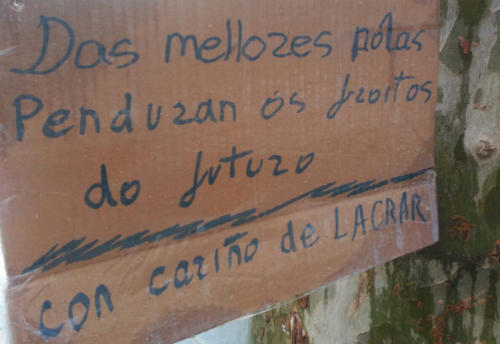 Das mellores polas
Penduran os froitos
do futuro
con cariño de LACRAR